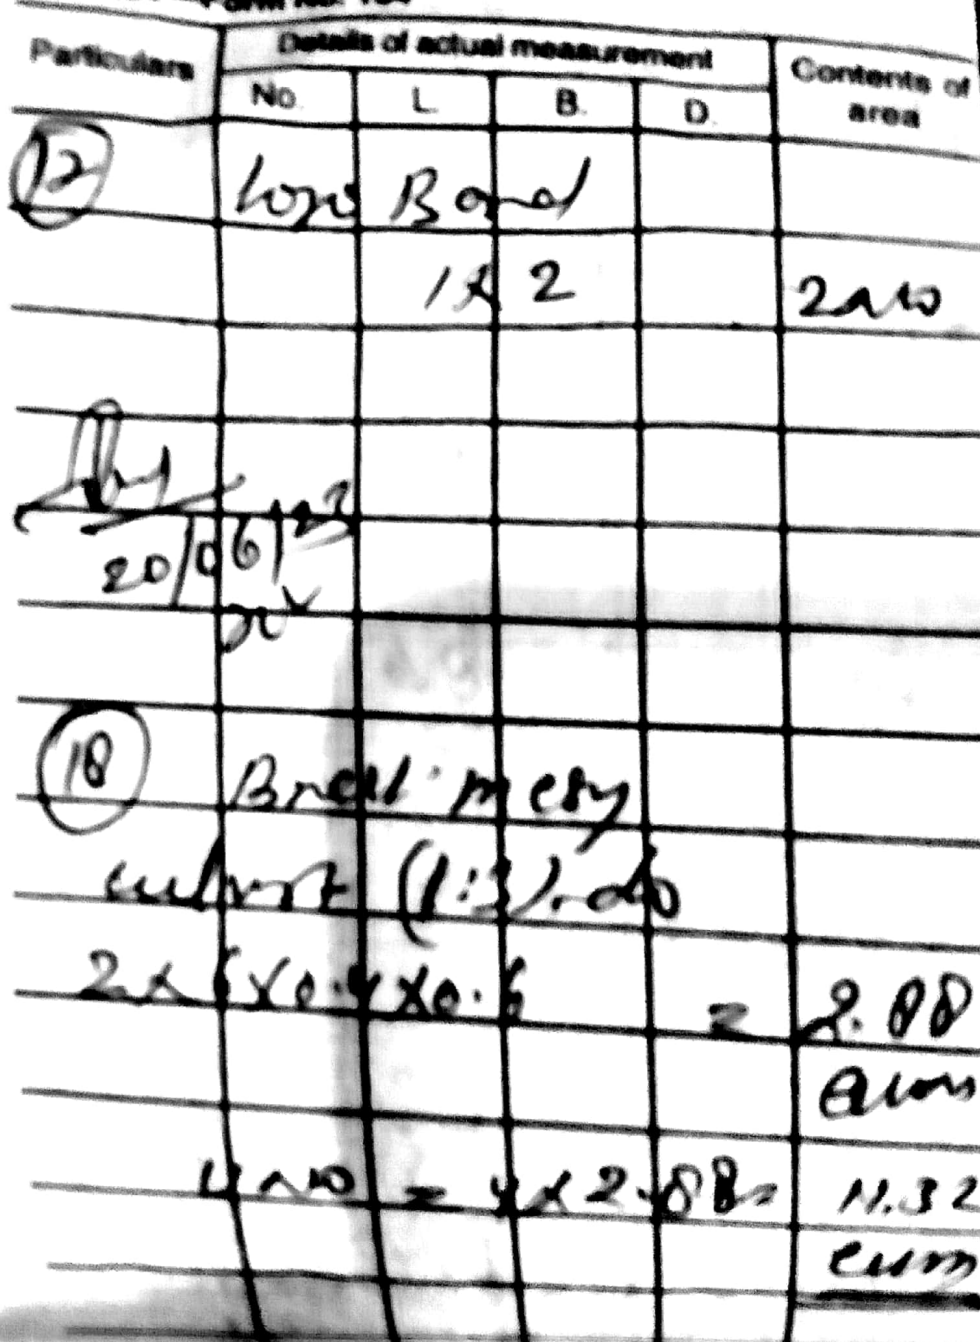 Form No.
Particulars
Details of actual measurement
Contents of area
No. L. B. D.
12
Bond
1 x 2
2 no
20/06/23
18
Brick mesy
culvert (1:3).
2 x 6 x 0.4 x 0.6 = 2.88
cum
4 no = 4 x 2.88 = 11.32
cum